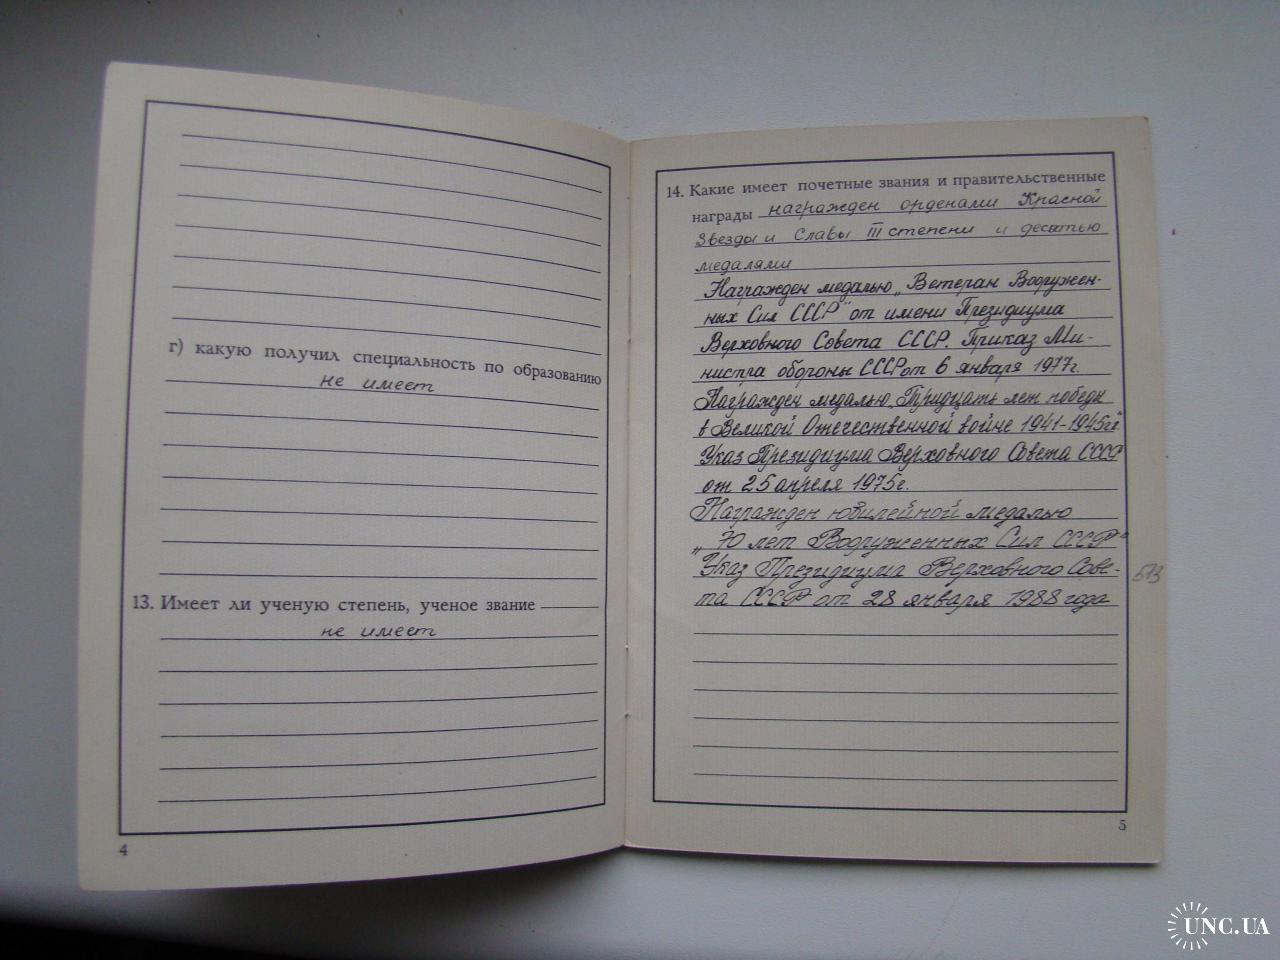 г) какую получил специальность по образованию
не имеет
13. Имеет ли ученую степень, ученое звание
не имеет
4
14. Какие имеет почетные звания и правительственные
награды награжден орденами Красной
Звезды и Славы III степени и десятью
медалями
Награжден медалью „Ветеран Вооружен-
ных Сил СССР" от имени Президиума
Верховного Совета СССР. Приказ Ми-
нистра обороны СССР от 6 января 1977г.
Награжден медалью „Тридцать лет победы
в Великой Отечественной войне 1941-1945гг"
Указ Президиума Верховного Совета СССР
от 25 апреля 1975г.
Награжден юбилейной медалью
„70 лет Вооруженных Сил СССР"
Указ Президиума Верховного Сове-
та СССР от 28 января 1988 года
573
5
UNC.UA